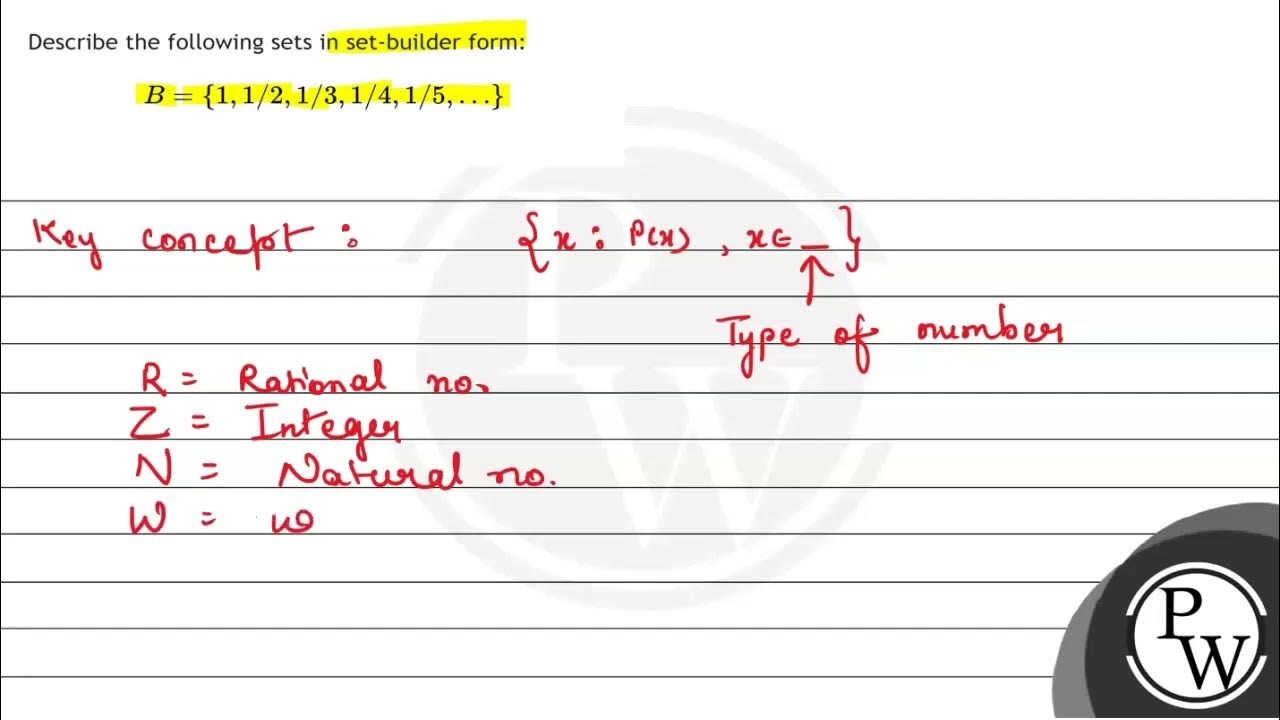 Describe the following sets in set-builder form:
B = {1, 1/2, 1/3, 1/4, 1/5, ...}
Key concept : {x : P(x) , x ∈ _}
Type of number
R = Rational no.
Z = Integer
N = Natural no.
W = wo
P
W
P
W